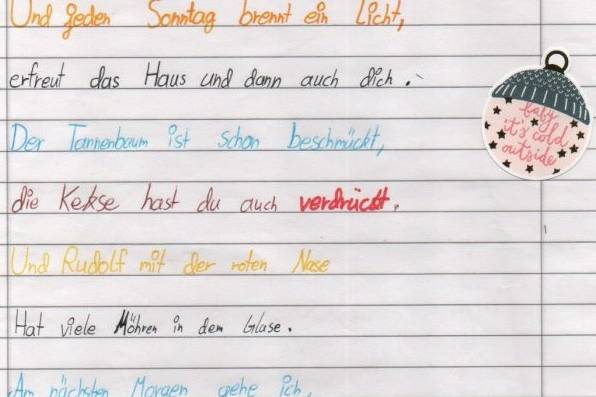 Und jeden Sonntag brennt ein Licht,
erfreut das Haus und dann auch dich.
Der Tannenbaum ist schon beschmückt,
die Kekse hast du auch verdrückt.
Und Rudolf mit der roten Nase
Hat viele Möhren in dem Glase.
Am nächsten Morgen gehe ich,
baby
it's cold
outside